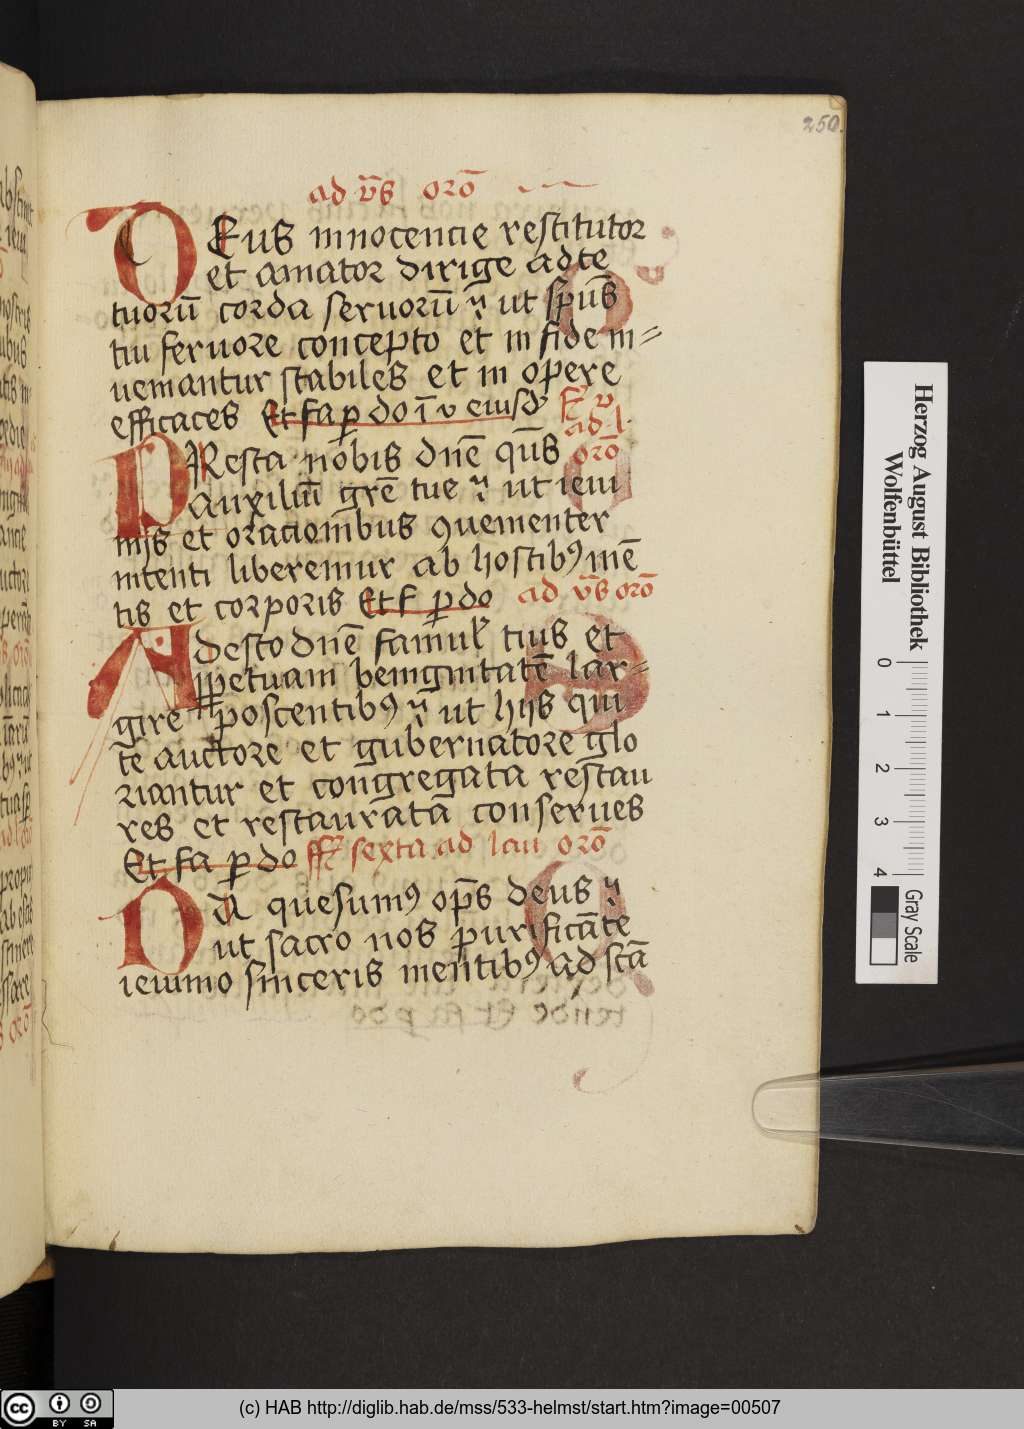 250.
ad vs̄ orō
DEus innocencie restitutor
et amator dirige ad te
tuorū corda seruorū ⁊ ut sp̄us̄
tui feruore concepto et in fide in=
ueniantur stabiles et in opere
efficaces Et fa ꝑ do ī v eiusd̛
ad l.
PResta nobis dnē qs̄ orō
auxiliū grē tue ⁊ ut ieiu
nijs et oracionibus ꝯuenienter
intenti liberemur ab hostibꝰ mē
tis et corporis Et f ꝑ do ad vs̄ orō
Adesto dnē famul̛ tuis et
ꝑpetuam benignitatē lar=
gire poscentibꝰ ⁊ ut hijs qui
tē auctore et gubernatore glo
riantur et congregata restau
res et restaurata conserues
Et fa ꝑ do ff̛ sexta ad lau orō
DA quesumꝰ op̄s deus ⁊
ut sacro nos purificāte
ieiunio sinceris mentibꝰ ad scā
Herzog August Bibliothek
Wolfenbüttel
0 1 2 3 4
Gray Scale
BY SA
(c) HAB http://diglib.hab.de/mss/533-helmst/start.htm?image=00507